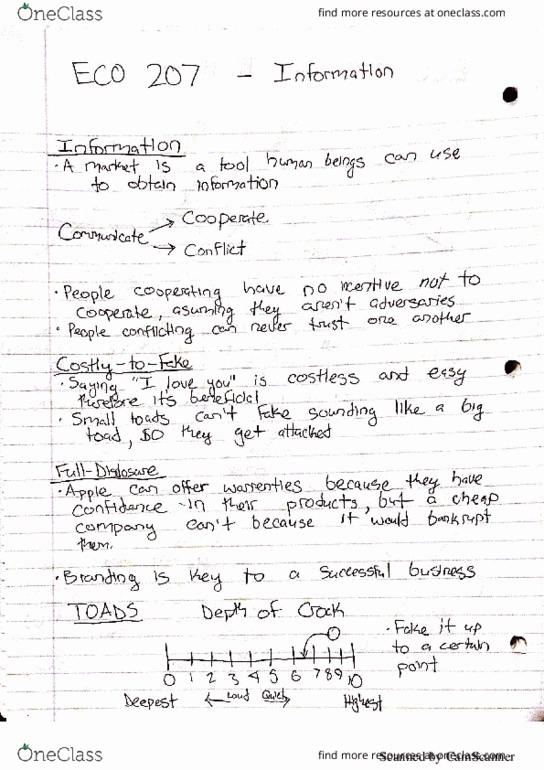 OneClass
find more resources at oneclass.com
ECO 207 - Information
Information
· A market is a tool human beings can use
to obtain information
Cooperate
Communicate
Conflict
· People cooperating have no incentive not to
cooperate, asuming they aren't adversaries
· People conflicting can never trust one another
Costly-to-Fake
· Saying "I love you" is costless and easy
therefore its beneficial
· Small toads can't fake sounding like a big
toad, so they get attacked
Full-Disclosure
· Apple can offer warrenties because they have
confidence in their products, but a cheap
company can't because it would bankrupt
them.
· Branding is key to a successful business
TOADS Depth of Croak
· Fake it up
to a certain
point
0 1 2 3 4 5 6 7 8 9 10
Deepest Loud Highest
OneClass
find more resources at oneclass.com
Scanned by CamScanner